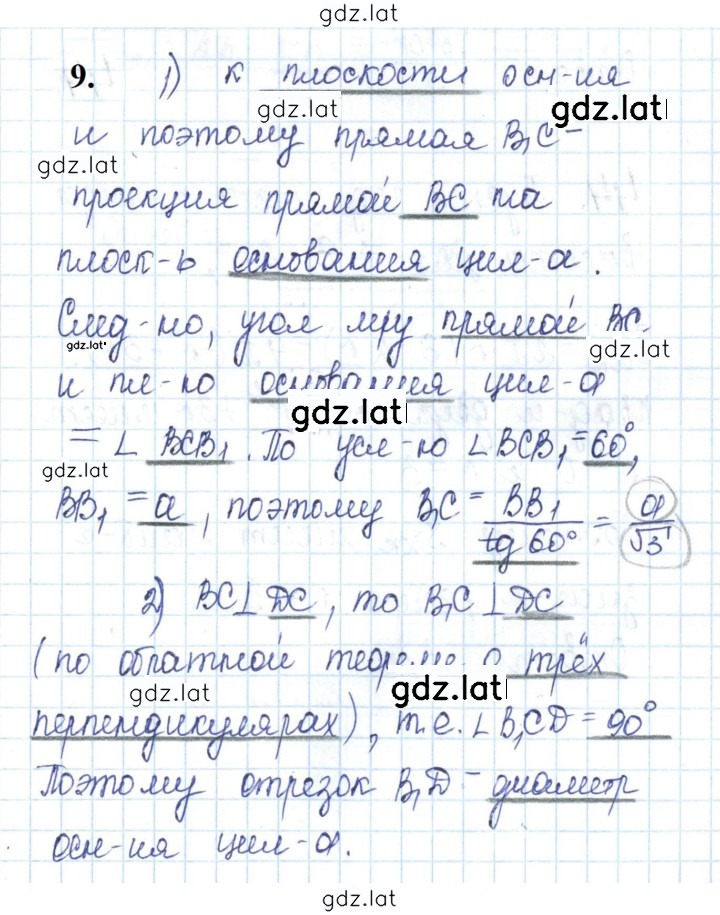 gdz.lat
9. 1) к плоскости осн-ия
gdz.lat gdz.lat
и поэтому прямая B₁C –
gdz.lat
проекция прямой BC на
плоск-ь основания цил-а.
След-но, угол м/у прямой BC
gdz.lat gdz.lat
и пл-ю основания цил-а
gdz.lat
= ∠ BCB₁. По усл-ю ∠BCB₁ = 60°,
gdz.lat
BB₁ = a, поэтому B₁C = BB₁/tg 60° = a/√3
2) BC⊥ DC, то B₁C ⊥ DC
(по обратной теореме о трёх
gdz.lat gdz.lat
перпендикулярах), т.е. ∠B₁CD = 90°
Поэтому отрезок B₁D – диаметр
осн-ия цил-а.
gdz.lat